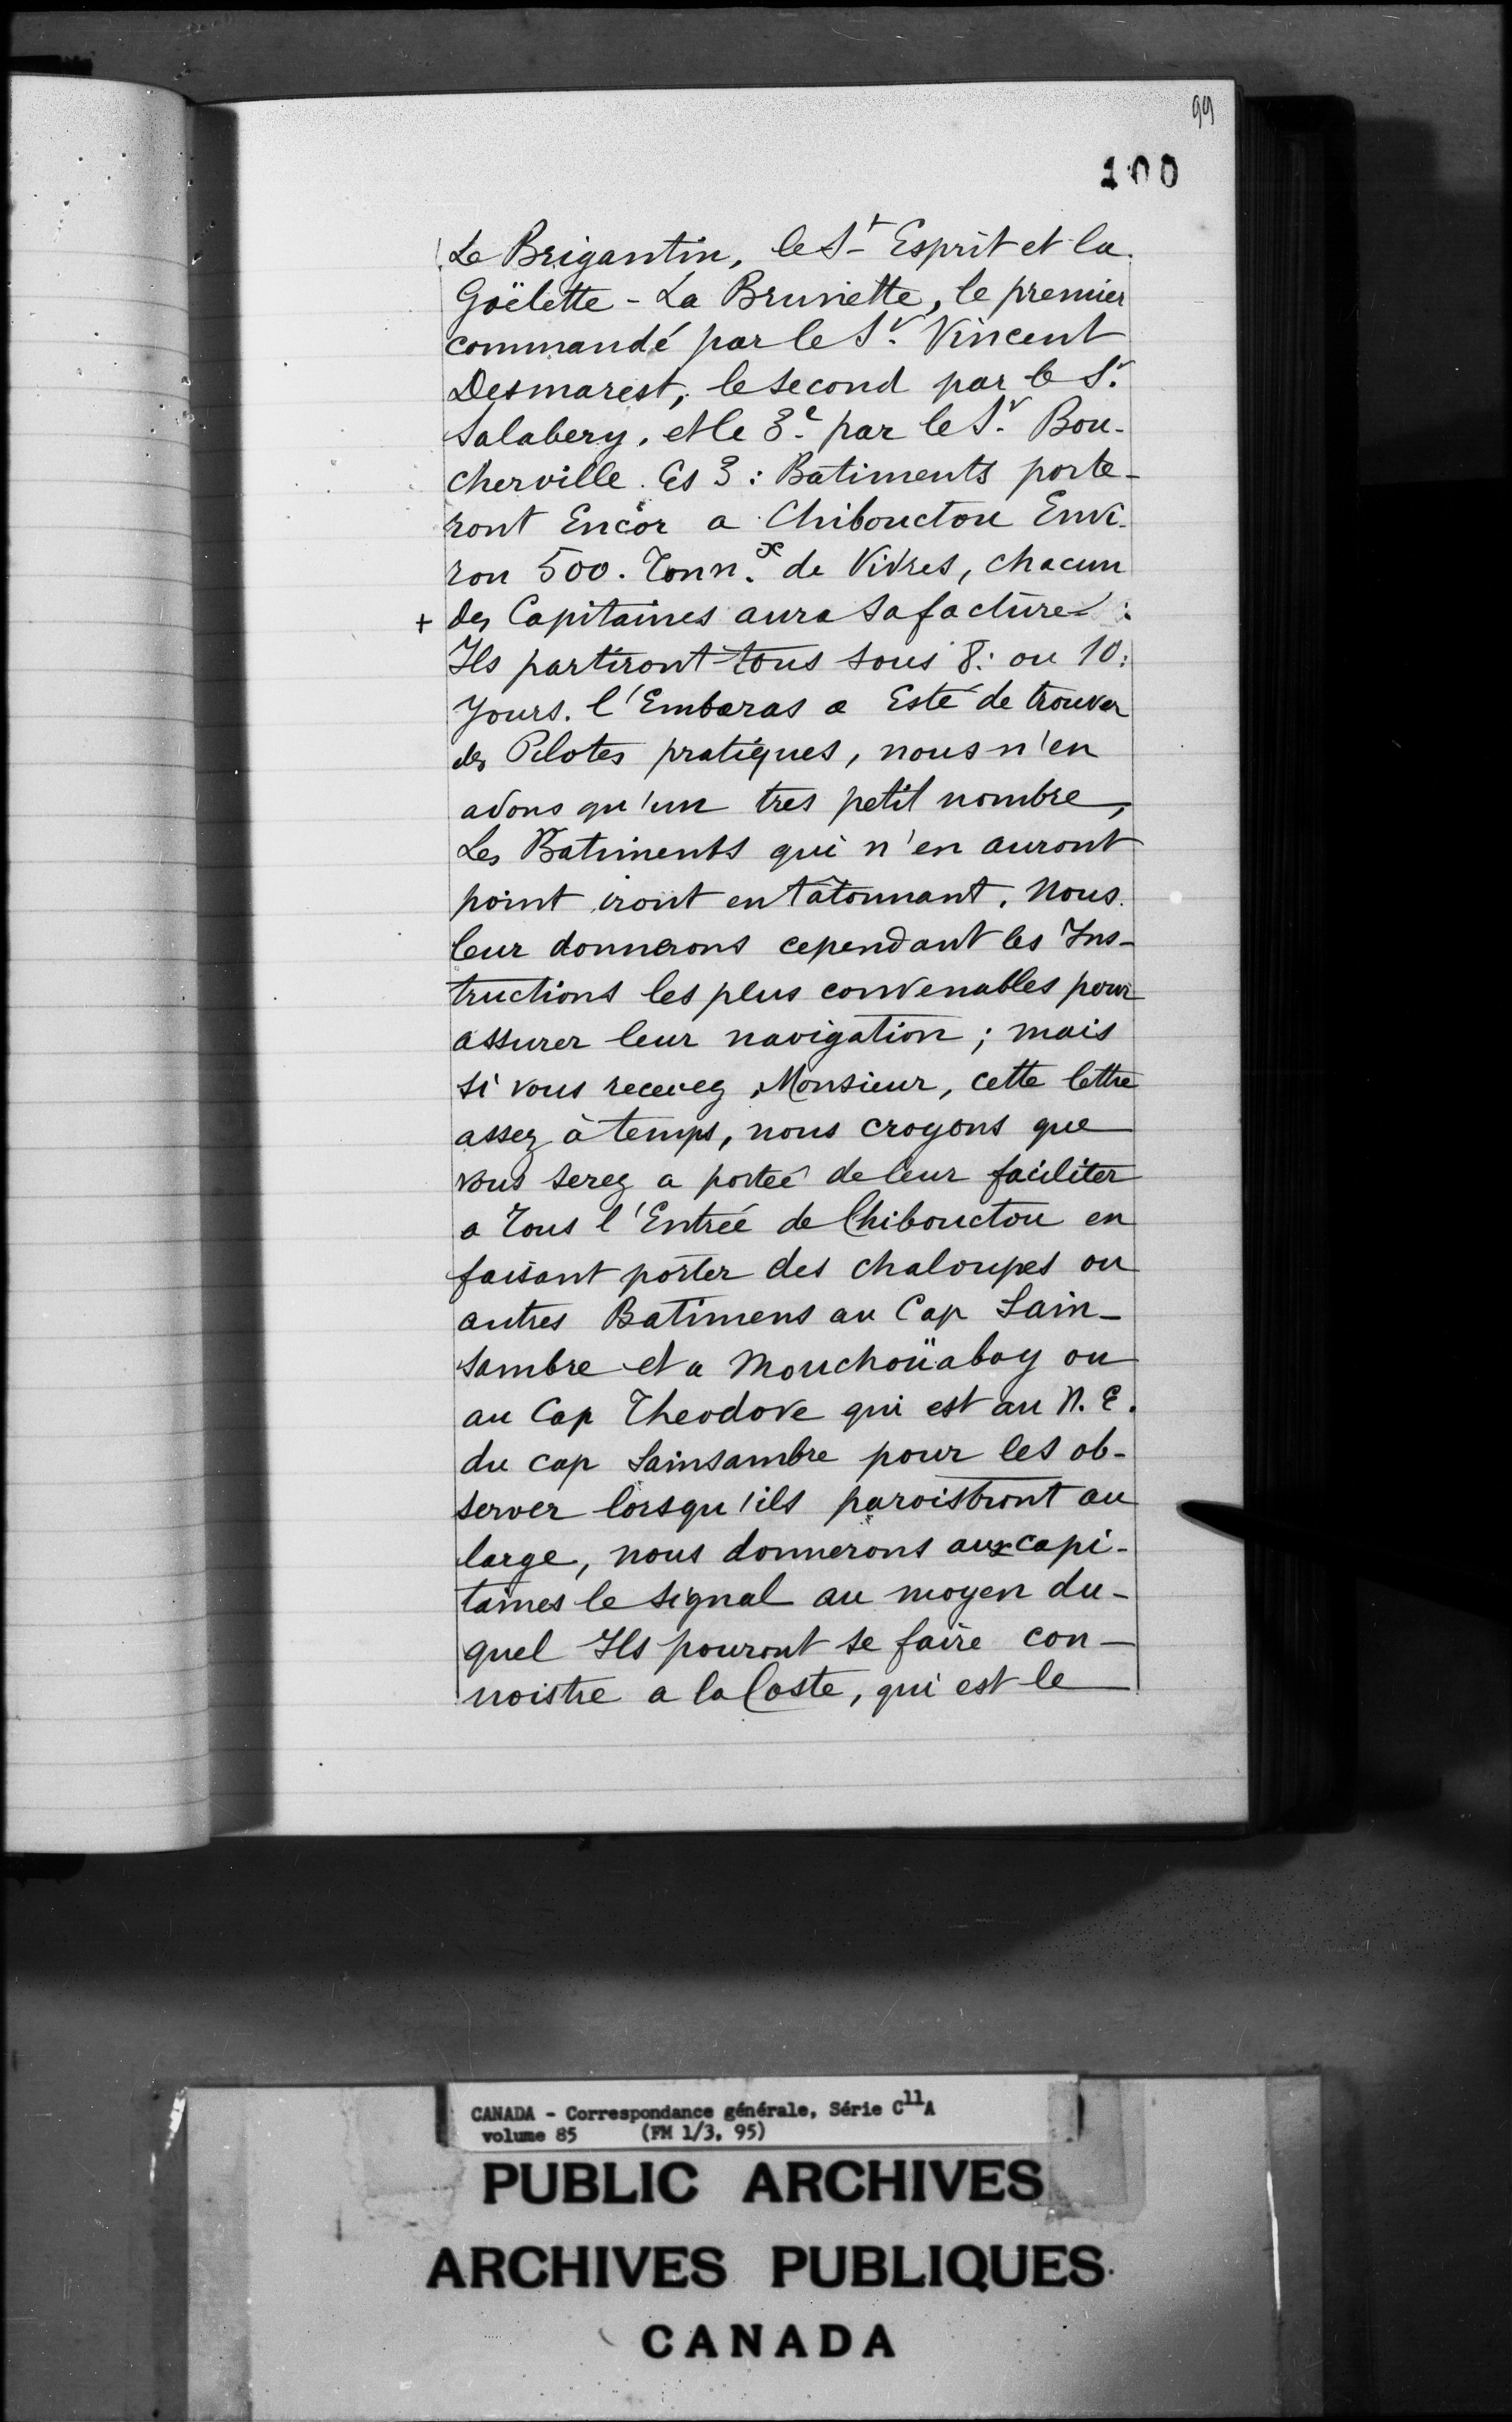 99
100
Le Brigantin, le St Esprit et la
Goëlette - La Brunette, le premier
commandé par le Sr. Vincent
Desmarest, le second par le Sr.
Salabery, et le 3e. par le Sr. Bou-
cherville. Ces 3: Batiments porte-
ront Encor a Chibouctou Envi-
ron 500. Tonn.x de Vivres, chacun
+ des Capitaines aura sa facture:
Ils partiront tous sous 8: ou 10:
Jours. l'Embaras a Esté de trouver
des Pilotes pratiques, nous n'en
avons qu'un tres petit nombre,
Les Batiments qui n'en auront
point iront en tâtonnant. Nous
leur donnerons cependant les Ins-
tructions les plus convenables pour
assurer leur navigation; mais
si vous recevez, Monsieur, cette lettre
assez à temps, nous croyons que
vous serez a porteé de leur faciliter
a Tous l'Entreé de Chibouctou en
faisant porter des chaloupes ou
autres Batimens au Cap Sain-
sambre et a Mouchoüabay ou
au Cap Theodore qui est au N. E.
du cap Sainsambre pour les ob-
server lorsqu'ils paroistront au
large, nous donnerons aux capi-
taines le signal au moyen du-
quel Ils pouront se faire con-
noistre a la Coste, qui est le
CANADA - Correspondance générale, Série C11A
volume 85 (FM 1/3, 95)
PUBLIC ARCHIVES
ARCHIVES PUBLIQUES
CANADA